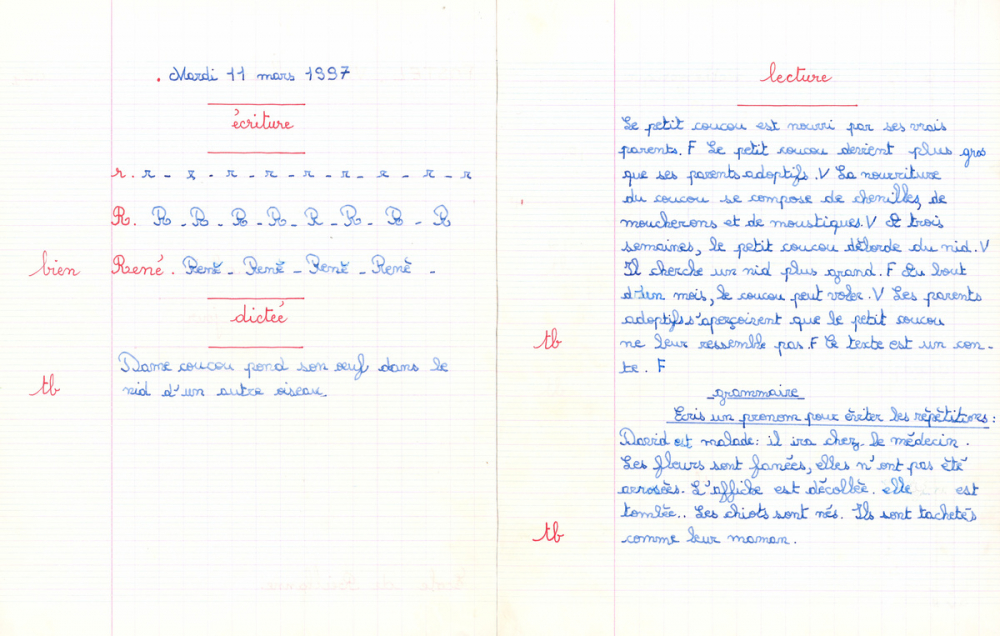 . Mardi 11 mars 1997
écriture
r. r - r - r - r - r - r - r - r - r
R. R - R - R - R - R - R - R - R
bien René. René - René - René - René -
dictée
Dame coucou pond son œuf dans le
tb nid d'un autre oiseau.
lecture
Le petit coucou est nourri par ses vrais
parents. F Le petit coucou devient plus gros
que ses parents adoptifs. V La nourriture
du coucou se compose de chenilles, de
moucherons et de moustiques. V À trois
semaines, le petit coucou déborde du nid. V
Il cherche un nid plus grand. F Au bout
d'un mois, le coucou peut voler. V Les parents
adoptifs s'aperçoivent que le petit coucou
tb ne leur ressemble pas. F Ce texte est un con-
te. F
grammaire
Ecris un pronom pour éviter les répétitions :
David est malade: il ira chez le médecin.
Les fleurs sont fanées, elles n'ont pas été
arrosées. L'affiche est décollée. elle est
tombée.. Les chiots sont nés. Ils sont tachetés
tb comme leur maman.